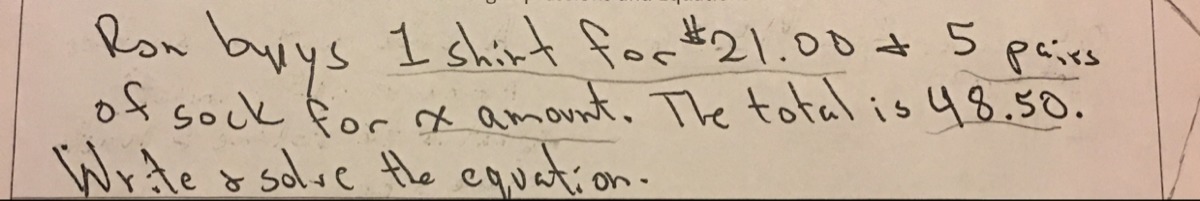 Ron buys 1 shirt for $21.00 & 5 pairs
of sock for x amount. The total is 48.50.
Write & solve the equation.